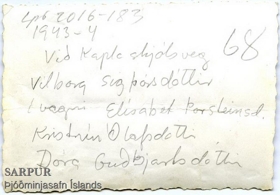 Lpt 2016-183
1943-4
68
Við Kaplaskjólsveg
Vilborg Sigþórsdóttir
í vagni Elísabet Þorsteinsd.
Kristrún Ólafsdóttir
Dóra Guðbjartsdóttir
SARPUR
Þjóðminjasafn Íslands